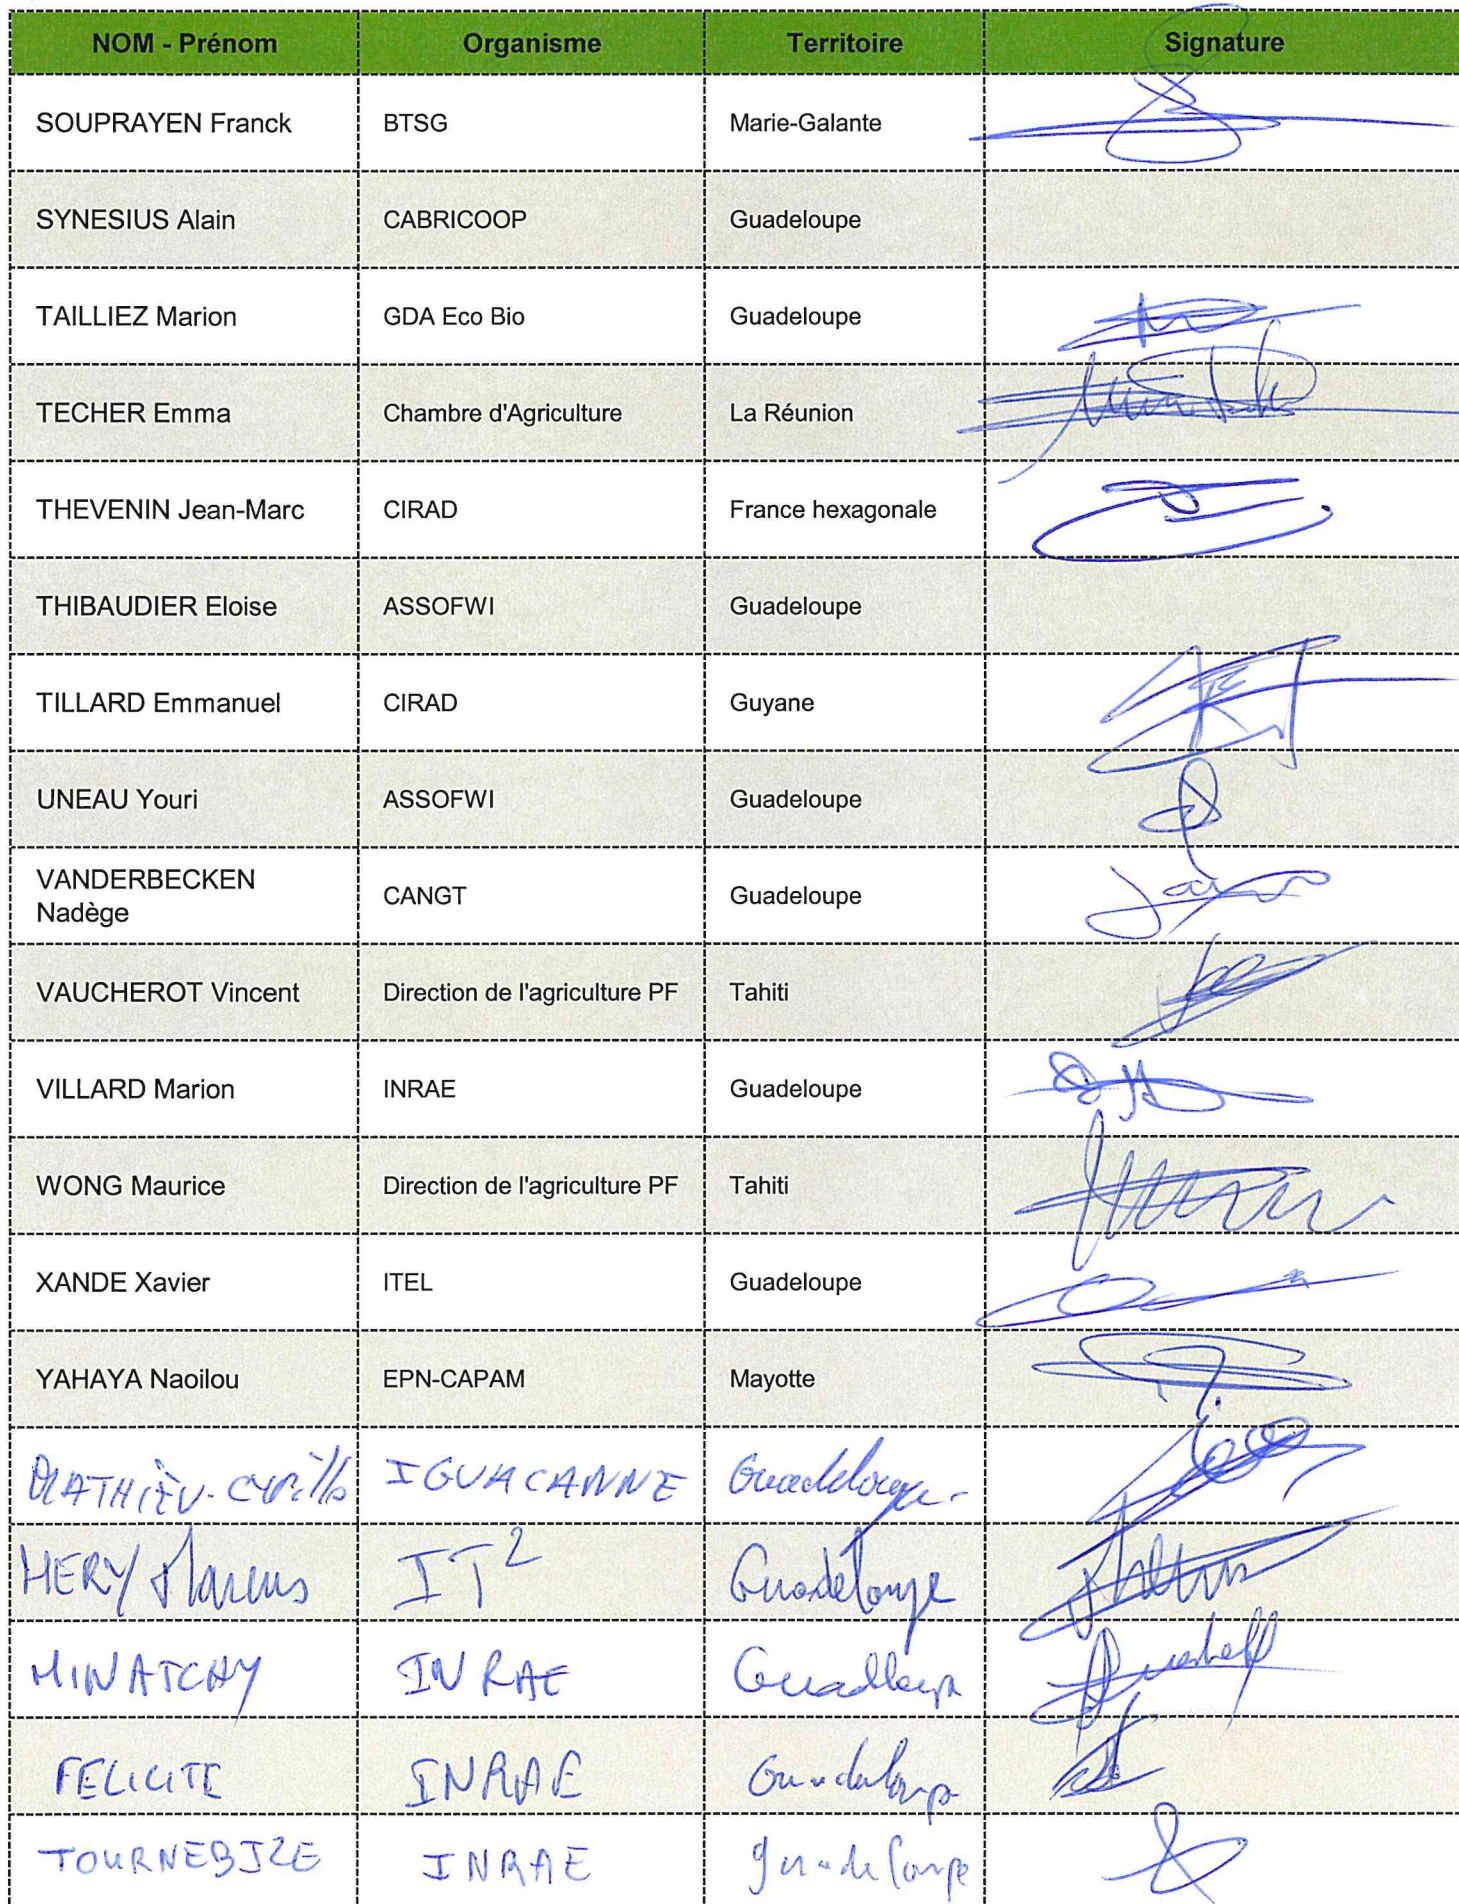 NOM - Prénom Organisme Territoire Signature
SOUPRAYEN Franck BTSG Marie-Galante
SYNESIUS Alain CABRICOOP Guadeloupe
TAILLIEZ Marion GDA Eco Bio Guadeloupe
TECHER Emma Chambre d'Agriculture La Réunion
THEVENIN Jean-Marc CIRAD France hexagonale
THIBAUDIER Eloise ASSOFWI Guadeloupe
TILLARD Emmanuel CIRAD Guyane
UNEAU Youri ASSOFWI Guadeloupe
VANDERBECKEN
Nadège CANGT Guadeloupe
VAUCHEROT Vincent Direction de l'agriculture PF Tahiti
VILLARD Marion INRAE Guadeloupe
WONG Maurice Direction de l'agriculture PF Tahiti
XANDE Xavier ITEL Guadeloupe
YAHAYA Naoilou EPN-CAPAM Mayotte
MATHIEU-Cyrille IGUACANNE Guadeloupe
HERY Marcus IT2 Guadeloupe
MINATCHY INRAE Guadeloupe
FELICITE INRAE Guadeloupe
TOURNEBIZE INRAE guadeloupe